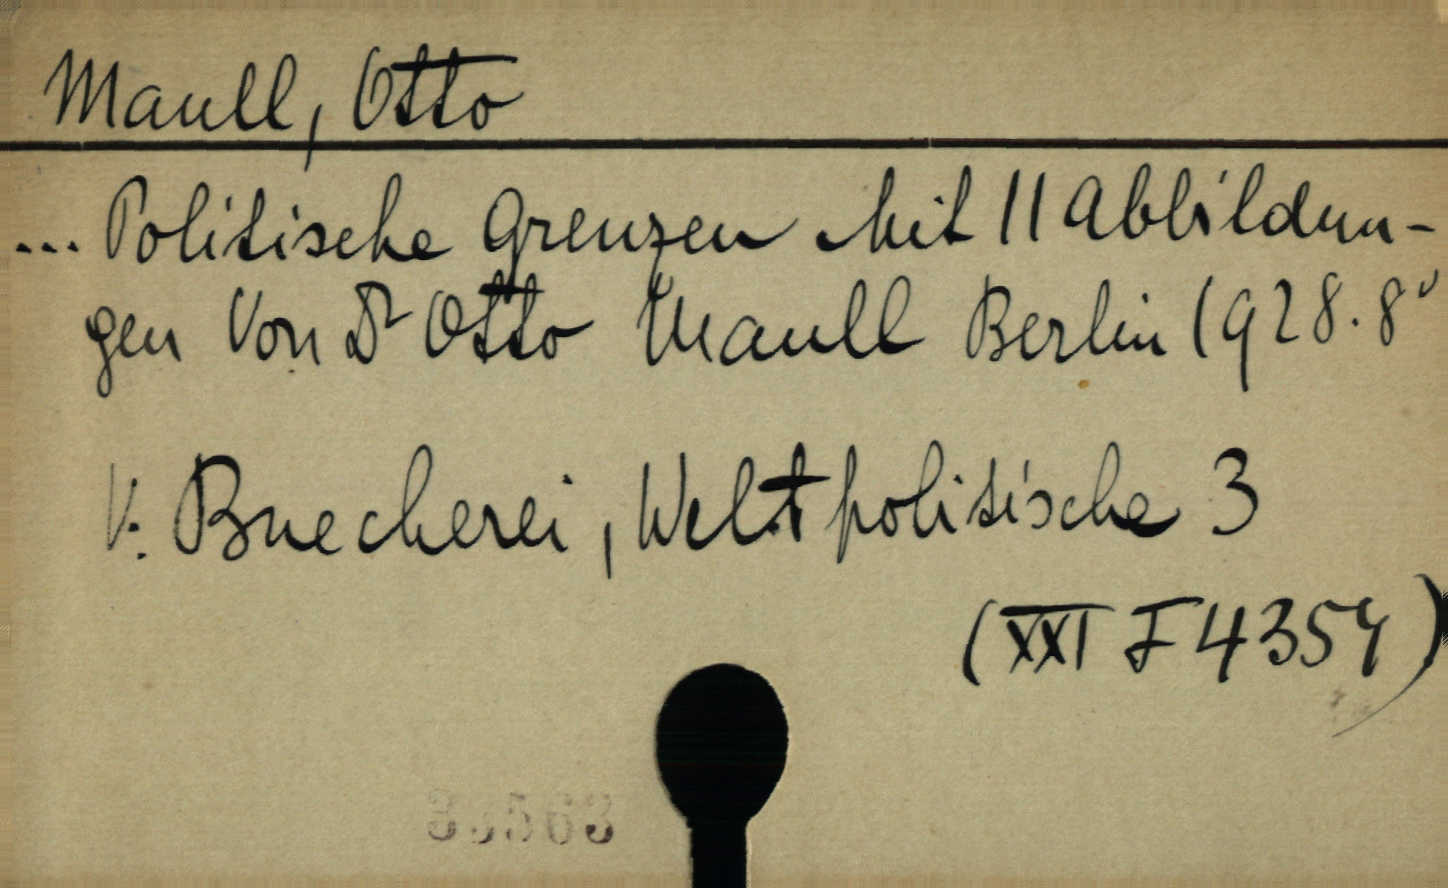 Maull, Otto
... Politische Grenzen Mit 11 Abbildun-
gen Von Dr Otto Maull Berlin 1928. 8°
V. Buecherei, Weltpolitische 3
(XXI F 4354)